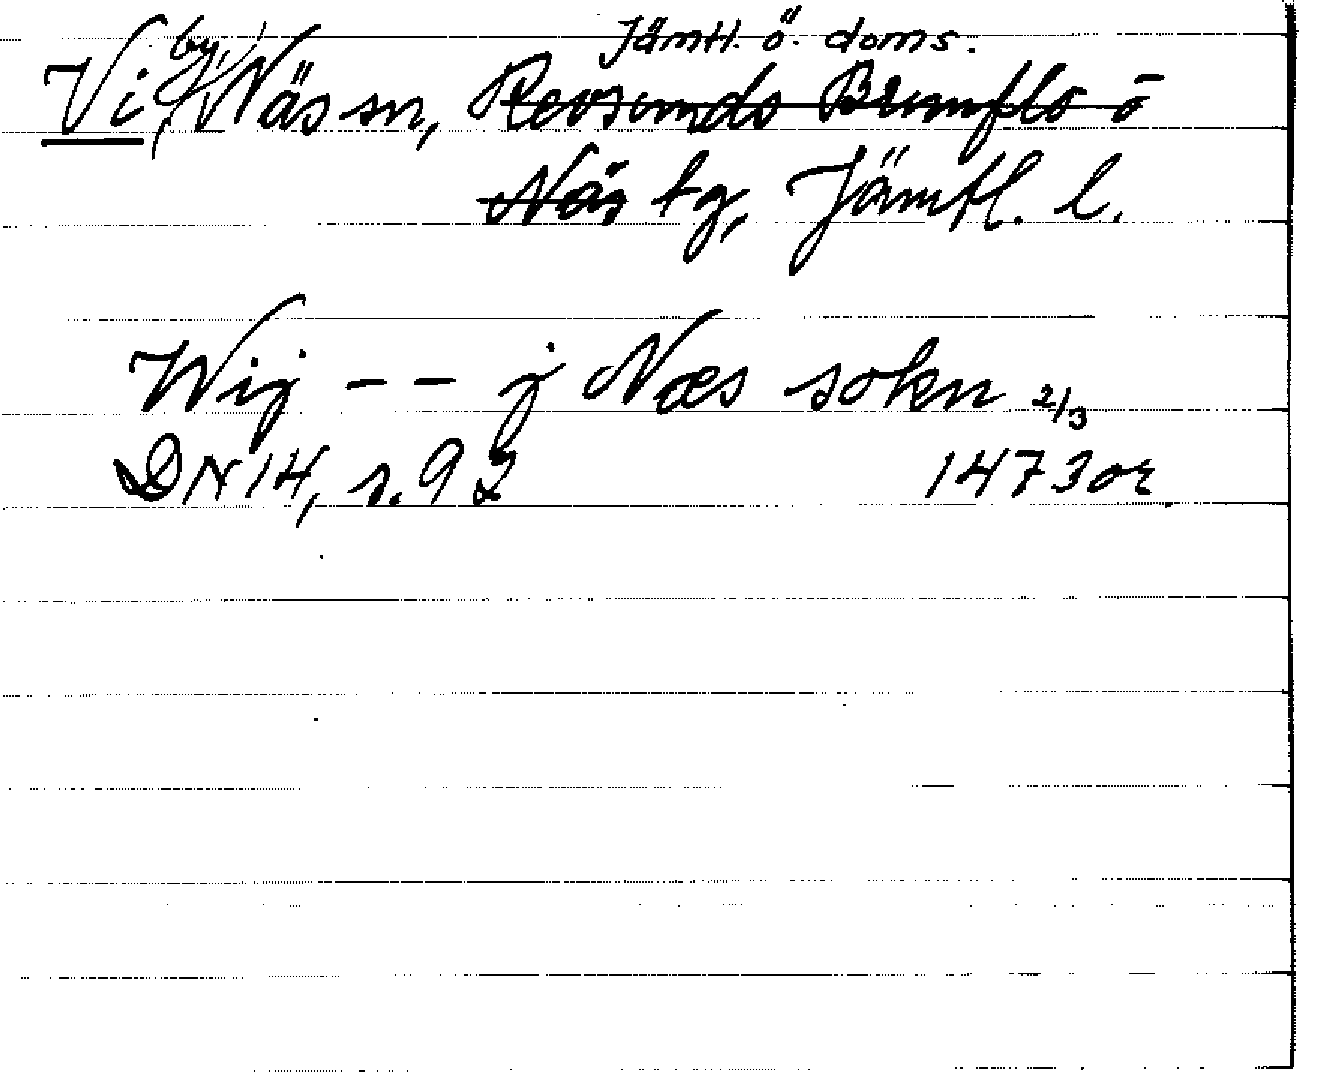 Jämtl. ö. doms.
Vi, by, Näs sn, Revsunds Brunflo o
Näs tg, Jämtl. l.
Wij -- j Næs sokn 2/3
DN 14, s. 92 1473 or.